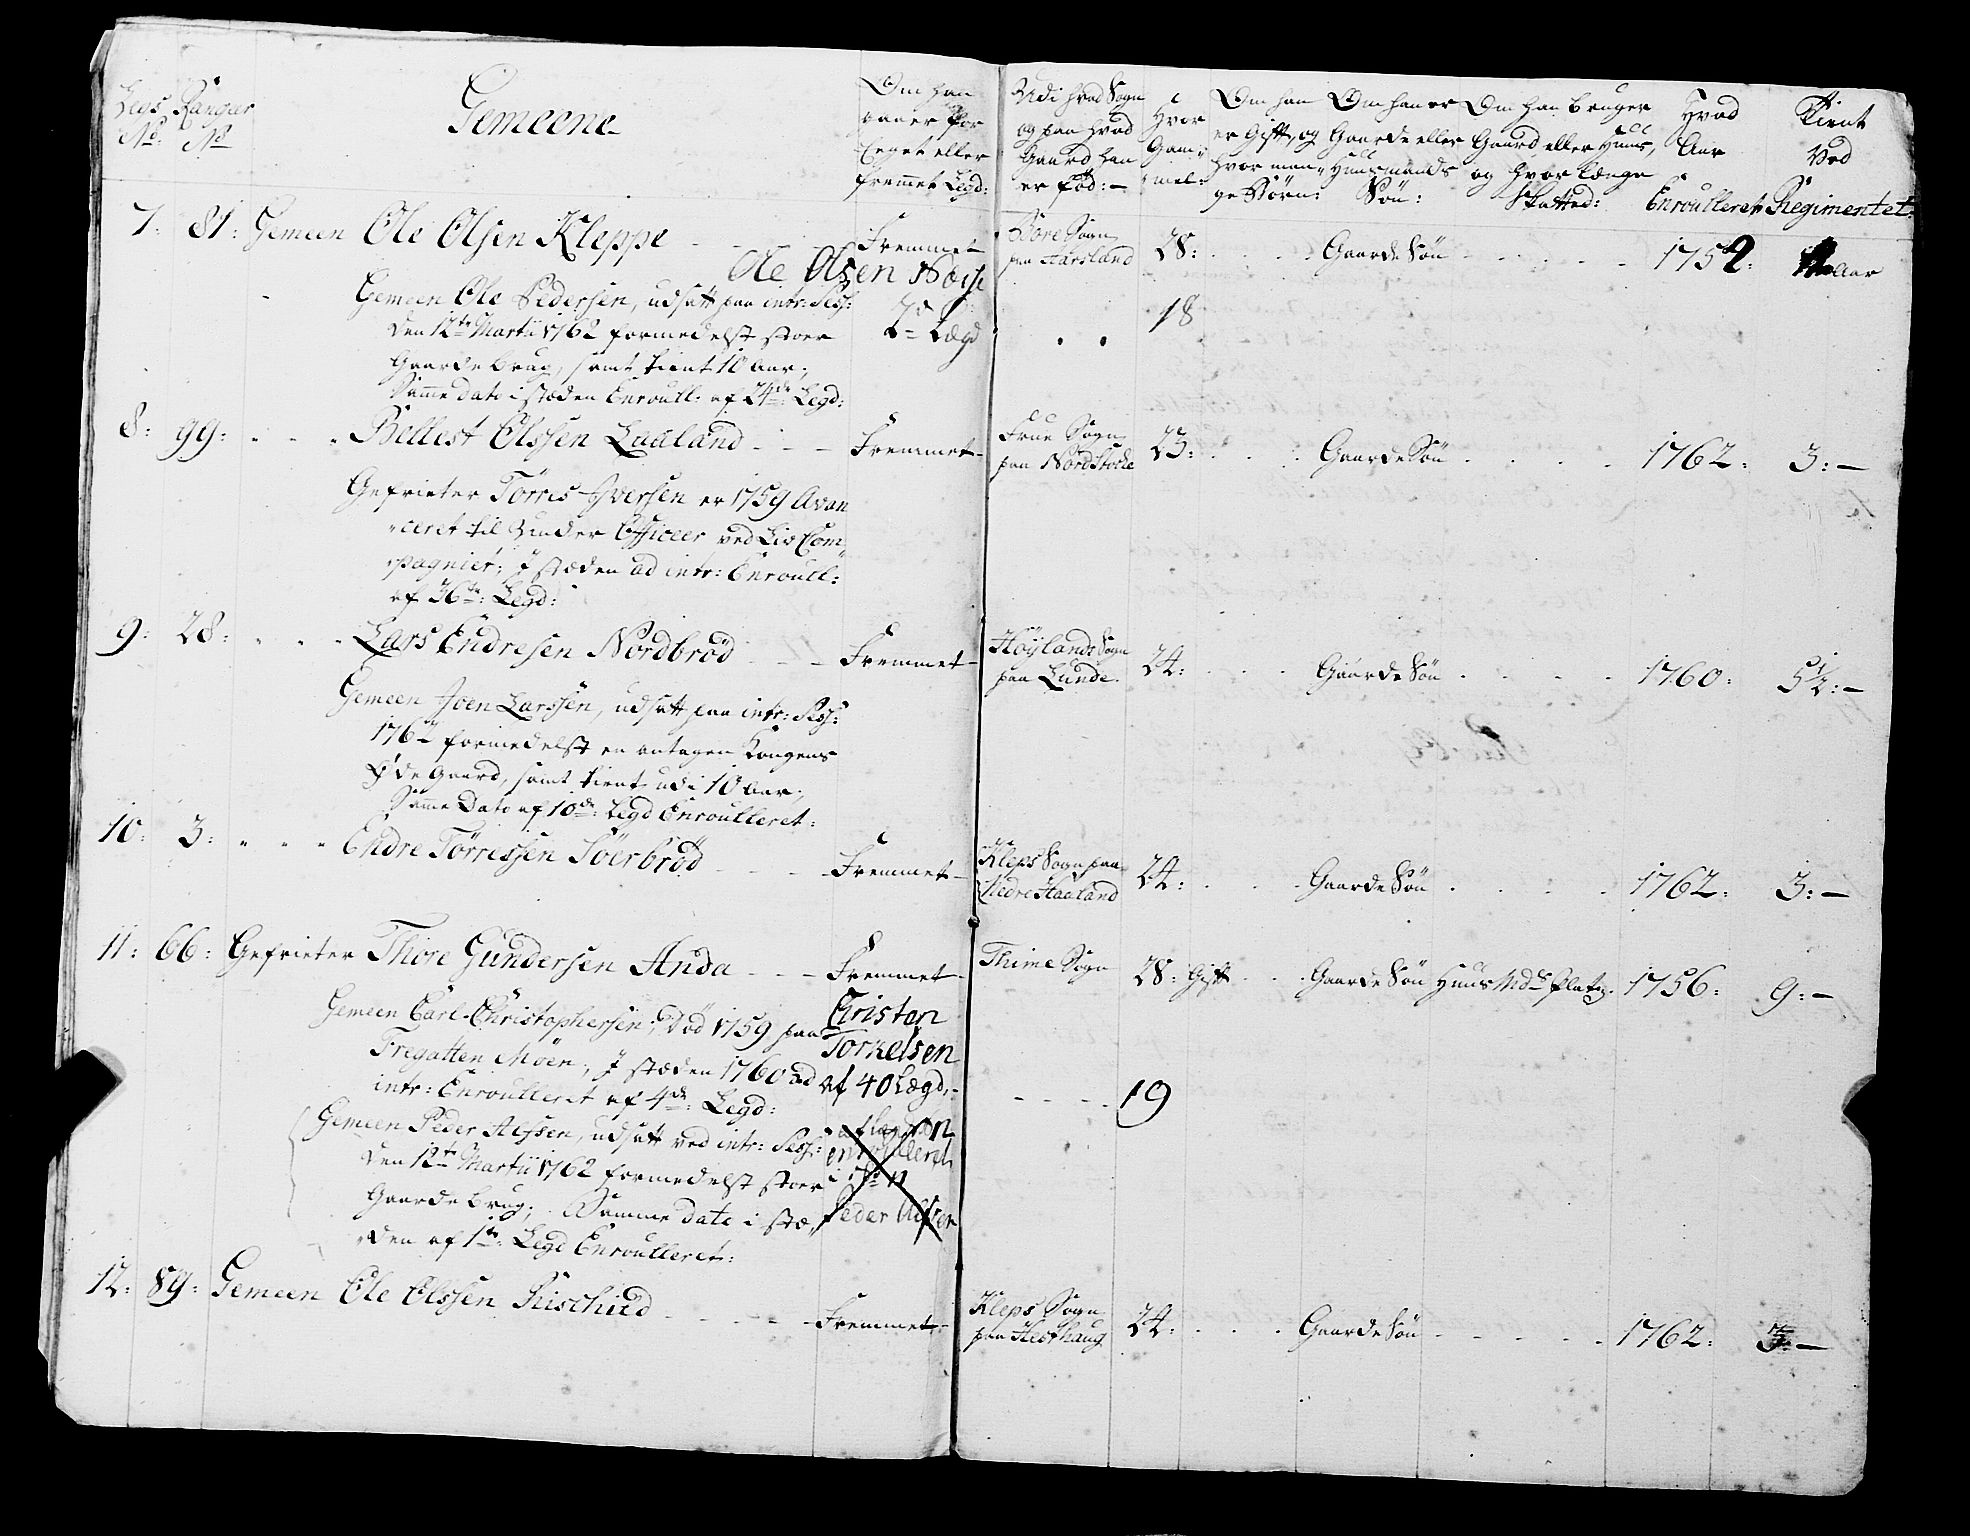 Legs Ranger
No: No
Gemeene
Om han
gaaer for
Eeget eller
fremmet Legd:
Udi hvad Sogn
og paa hvad
Gaard han
er föd:
Hvor
Gam„
„mel:
Om han
er Gift, og
hvor man„
ge Börn:
Om han er
Gaarde eller
Huusmands
Sön:
Om han bruger
Gaard, eller Huus,
og hvor længe
Skatted:
Hvad
Aar
Enroulleret
Tient
Ved
Regimentet:
7. 81: Gemeen Ole Olsen Kleppe - - - Fremmet Bore Sogn paa Harsland 28: Gaarde Sön 1752: Aar
Ole Olsen
Gemeen Ole Pedersen, udsatt paa intr: Sess:
den 12te Martii 1762 formedelst stoer
Gaarde brug, samt tient 10 Aar;
Samme dato i stæden Enroull: af 24de Legd:
Lægd
18
8: 99: „ „ „ Bellest Olssen Laaland - - - Fremmet Frue Sogn paa 23: Gaarde Sön 1762: 3:
Gefrieter Törris Iversen er 1759 Avan
„ceret til Under Officeer ved Liv Com„
„pagniet; I stæden ad intr: Enroull:
af 36te: Legd:
9: 28: „ „ „ Lars Endresen Nordbröd - - - Fremmet Höylands Sogn paa Lunde. 24: Gaarde Sön 1760: 5½:
Gemeen Joen Larssen, udsatt paa intr: Sess:
formedelst en antagen Kongens
Öde Gaard, samt tient udi 10 Aar;
Samme Dato af 10de: Legd Enroulleret:
10: 3: „ „ „ Endre Törressen Söerbröd - - - Fremmet Kleps Sogn paa Nedre Haaland 24: Gaarde Sön 1762: 3:
11: 66: Gefrieter Thore Gundersen Anda - - - Fremmet Thime Sogn 28: Gift Gaarde Sön Huus Mds Platz. 1756: 9:
Gemeen Carl Christophersen; Död 1759 paa
Fregatten Möen; I stæden 1760 ad
intr: Enroulleret af 4de: Legd:
Christen
Torkelsen
af 40 Lægd:
19
Gemeen Peder Alfsen, udsatt ved intr: Sess:
den 12te Martii 1762 formedelst stoer
Gaarde brug; Samme dato i stæ„
„den af 1te: Legd Enroulleret:
enroulleret
Peder Alfsen
12: 89: Gemeen Ole Olssen - - - Fremmet Kleps Sogn paa Hesthaug 24: Gaarde Sön 1762: 3: